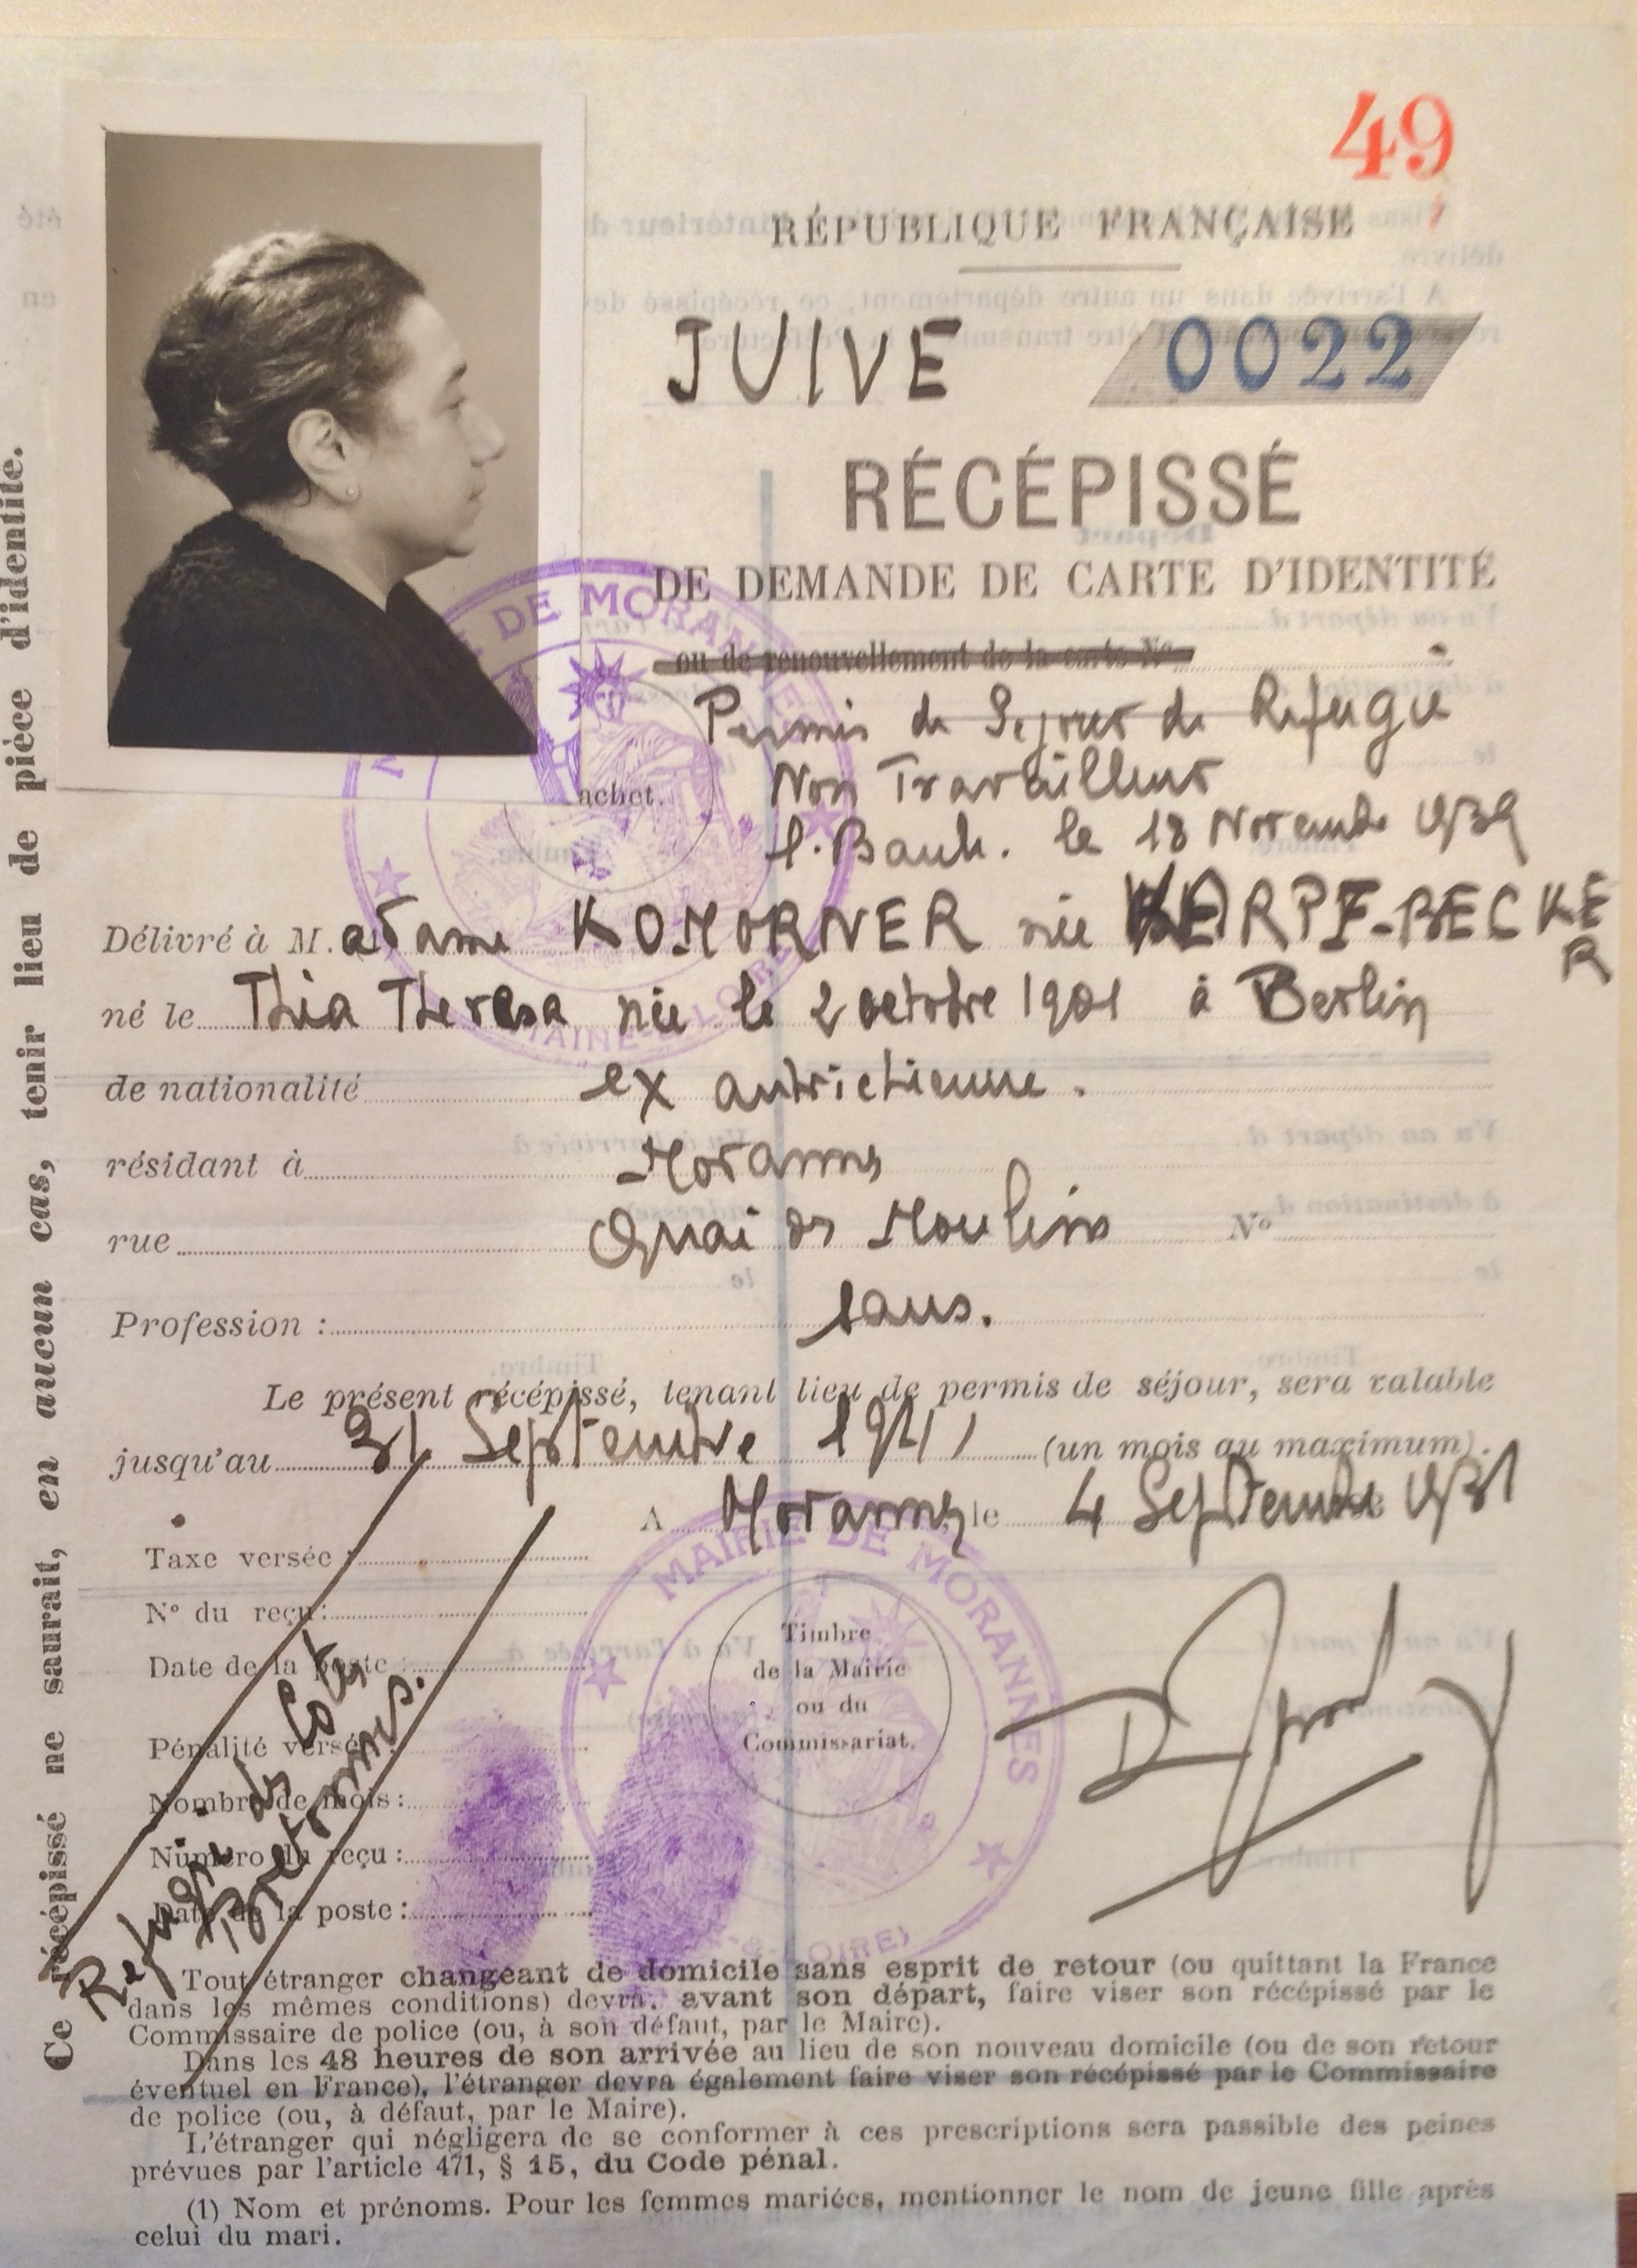 49
RÉPUBLIQUE FRANÇAISE
JUIVE 0022
RÉCÉPISSÉ
DE DEMANDE DE CARTE D'IDENTITÉ
ou de renouvellement de la carte No
Permis de Sejour de Refugie
Non Travailleur
le 18 Novembre 1939
achet.
Délivré à M. adame KOMORNER née KARPF-BECKER
né le Thia Theresa née le 2 octobre 1901 à Berlin
de nationalité ex autrichienne.
résidant à Morannes
rue Quai des Moulins No
Profession : sans.
Le présent récépissé, tenant lieu de permis de séjour, sera valable
jusqu'au 31 Septembre 1941 (un mois au maximum).
A Morannes, le 4 Septembre 1931
Taxe versée :
N° du reçu :
Date de la poste :
Pénalité versée :
Nombre de mois :
Numéro du reçu :
Date de la poste :
Refugie des Cotes
Bretonnes.
Timbre
de la Mairie
ou du
Commissariat.
MAIRIE DE MORANNES
Tout étranger changeant de domicile sans esprit de retour (ou quittant la France
dans les mêmes conditions) devra, avant son départ, faire viser son récépissé par le
Commissaire de police (ou, à son défaut, par le Maire).
Dans les 48 heures de son arrivée au lieu de son nouveau domicile (ou de son retour
éventuel en France), l'étranger devra également faire viser son récépissé par le Commissaire
de police (ou, à défaut, par le Maire).
L'étranger qui négligera de se conformer à ces prescriptions sera passible des peines
prévues par l'article 471, § 15, du Code pénal.
(1) Nom et prénoms. Pour les femmes mariées, mentionner le nom de jeune fille après
celui du mari.
Ce récépissé ne saurait, en aucun cas, tenir lieu de pièce d'identité.